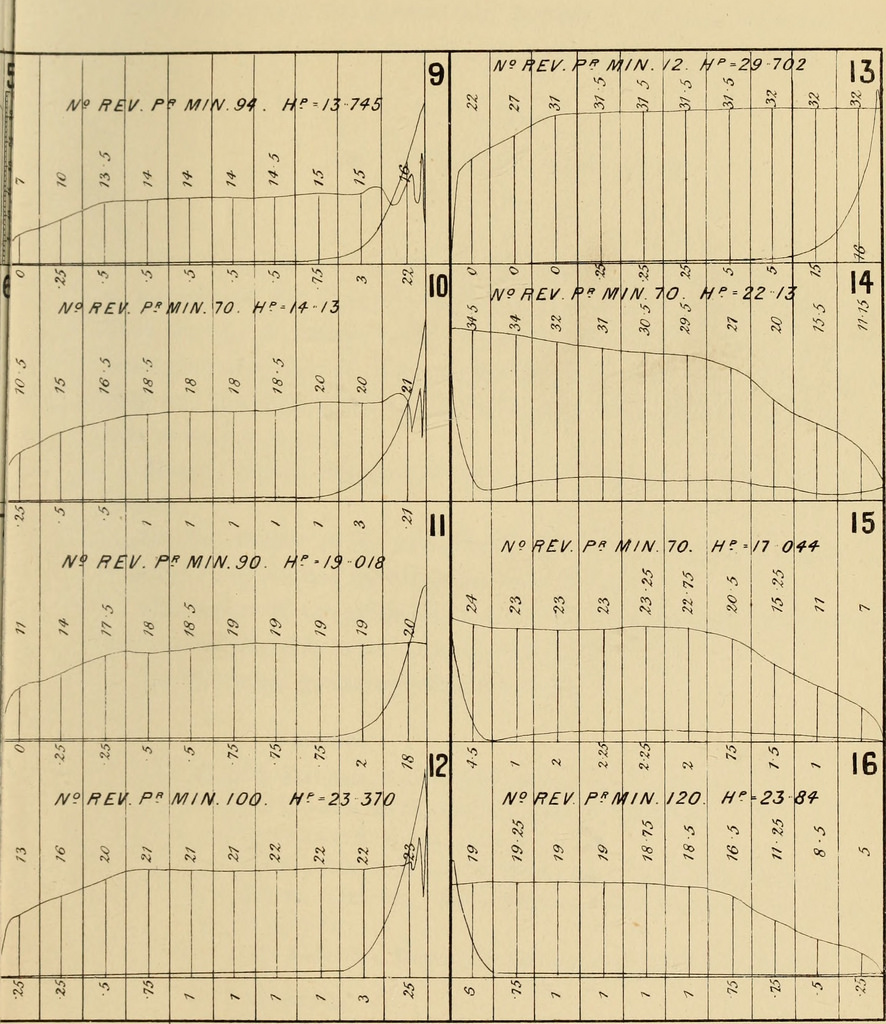 9
Nº REV. Pᴿ MIN. 94. Hᴾ = 13·745
7 10 13·5 14 14 14 14·5 15 15 16
0 ·25 ·5 ·5 ·5 ·5 ·5 ·75 3 22
10
Nº REV. Pᴿ MIN. 70. Hᴾ = 14·13
10·5 15 16·5 18·5 18 18 18·5 20 20 21
·25 ·5 ·5 1 1 1 1 1 3 ·21
11
Nº REV. Pᴿ MIN. 90. Hᴾ = 19·018
11 14 17·5 18 18·5 19 19 19 19 20
0 ·25 ·25 ·5 ·5 ·75 ·75 ·75 2 18
12
Nº REV. Pᴿ MIN. 100. Hᴾ = 23·370
13 16 20 21 21 21 22 22 22 23
·25 ·25 ·5 ·75 1 1 1 1 3 25
13
Nº REV. Pᴿ MIN. 12. Hᴾ = 29·702
22 27 31 31·5 31·5 31·5 31·5 32 32 32
0 0 0 ·25 ·25 ·25 5 5 15 16
14
Nº REV. Pᴿ MIN. 70. Hᴾ = 22·13
34·5 34 32 31 30·5 29·5 27 20 15·5 11·15
15
Nº REV. Pᴿ MIN. 70. Hᴾ = 17 044
24 23 23 23 23·25 22·75 20·5 15·25 11 7
4·5 1 2 2·25 2·25 2 75 1·5 1
16
Nº REV. Pᴿ MIN. 120. Hᴾ = 23·84
19 19·25 19 19 18·75 18·5 16·5 11·25 8·5 5
·75 1 1 1 1 75 ·75 ·5 ·25